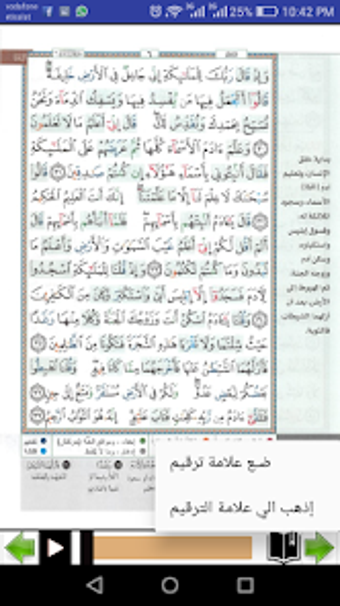 vodafone
etisalat
3G
3G
25%
10:42 PM
٦
وَإِذْ قَالَ رَبُّكَ لِلْمَلَٰٓئِكَةِ إِنِّى جَاعِلٌ فِى ٱلْأَرْضِ خَلِيفَةً
قَالُوٓا۟ أَتَجْعَلُ فِيهَا مَن يُفْسِدُ فِيهَا وَيَسْفِكُ ٱلدِّمَآءَ وَنَحْنُ
نُسَبِّحُ بِحَمْدِكَ وَنُقَدِّسُ لَكَ قَالَ إِنِّىٓ أَعْلَمُ مَا لَا تَعْلَمُونَ
٣٠ وَعَلَّمَ ءَادَمَ ٱلْأَسْمَآءَ كُلَّهَا ثُمَّ عَرَضَهُمْ عَلَى ٱلْمَلَٰٓئِكَةِ
فَقَالَ أَنۢبِـُٔونِى بِأَسْمَآءِ هَٰٓؤُلَآءِ إِن كُنتُمْ صَٰدِقِينَ ٣١ قَالُوا۟
سُبْحَٰنَكَ لَا عِلْمَ لَنَآ إِلَّا مَا عَلَّمْتَنَآ إِنَّكَ أَنتَ ٱلْعَلِيمُ ٱلْحَكِيمُ
٣٢ قَالَ يَٰٓـَٔادَمُ أَنۢبِئْهُم بِأَسْمَآئِهِمْ فَلَمَّآ أَنۢبَأَهُم بِأَسْمَآئِهِمْ قَالَ
أَلَمْ أَقُل لَّكُمْ إِنِّىٓ أَعْلَمُ غَيْبَ ٱلسَّمَٰوَٰتِ وَٱلْأَرْضِ وَأَعْلَمُ مَا
تُبْدُونَ وَمَا كُنتُمْ تَكْتُمُونَ ٣٣ وَإِذْ قُلْنَا لِلْمَلَٰٓئِكَةِ ٱسْجُدُوا۟
لِـَٔادَمَ فَسَجَدُوٓا۟ إِلَّآ إِبْلِيسَ أَبَىٰ وَٱسْتَكْبَرَ وَكَانَ مِنَ ٱلْكَٰفِرِينَ
٣٤ وَقُلْنَا يَٰٓـَٔادَمُ ٱسْكُنْ أَنتَ وَزَوْجُكَ ٱلْجَنَّةَ وَكُلَا مِنْهَا رَغَدًا
حَيْثُ شِئْتُمَا وَلَا تَقْرَبَا هَٰذِهِ ٱلشَّجَرَةَ فَتَكُونَا مِنَ ٱلظَّٰلِمِينَ ٣٥
فَأَزَلَّهُمَا ٱلشَّيْطَٰنُ عَنْهَا فَأَخْرَجَهُمَا مِمَّا كَانَا فِيهِ وَقُلْنَا ٱهْبِطُوا۟
بَعْضُكُمْ لِبَعْضٍ عَدُوٌّ وَلَكُمْ فِى ٱلْأَرْضِ مُسْتَقَرٌّ وَمَتَٰعٌ إِلَىٰ حِينٍ
٣٦ فَتَلَقَّىٰٓ ءَادَمُ مِن رَّبِّهِۦ كَلِمَٰتٍ فَتَابَ عَلَيْهِ إِنَّهُۥ هُوَ ٱلتَّوَّابُ ٱلرَّحِيمُ ٣٧
بداية خلق
الإنسان، وتعليم
آدم
الأسماء، وسجود
الملائكة له،
وفسوق إبليس
واستكباره،
وسكن آدم
وزوجه الجنة،
ثم الهبوط إلى
الأرض بعد أن
أزلهما الشيطان،
فالتوبة.
ضع علامة ترقيم
إذهب الي علامة الترقيم